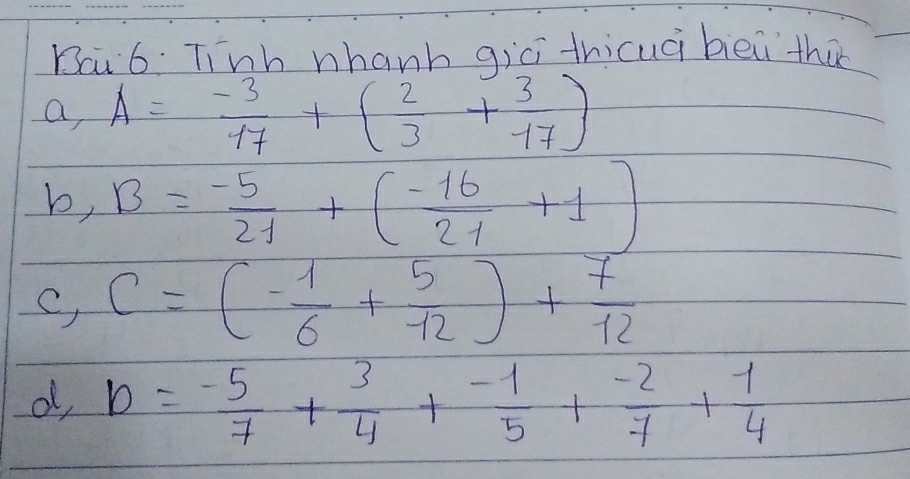 Bài 6: Tính nhanh giá trị của biểu thức
a, A = -3/17 + (2/3 + 3/17)
b, B = -5/21 + (-16/21 + 1)
c, C = (-1/6 + 5/12) + 7/12
d, D = -5/7 + 3/4 + -1/5 + -2/7 + 1/4